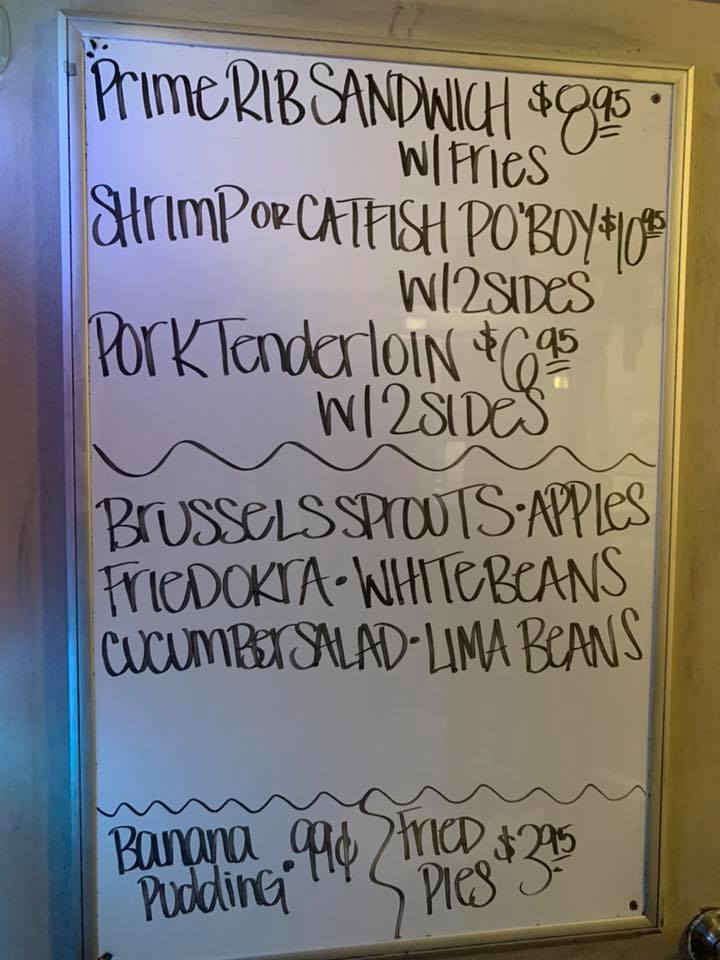 Prime RIB SANDWICH $8.95
W/Fries
SHrimP OR CATFISH PO'BOY $10.95
W/2 SIDES
Pork Tenderloin $6.95
W/2 SIDES
Brussels sprouts · APPles
FrieD OKrA · WHITE BEANS
CUCUMBer SALAD · LIMA BEANS
Banana Pudding .99¢
Fried Pies $3.95